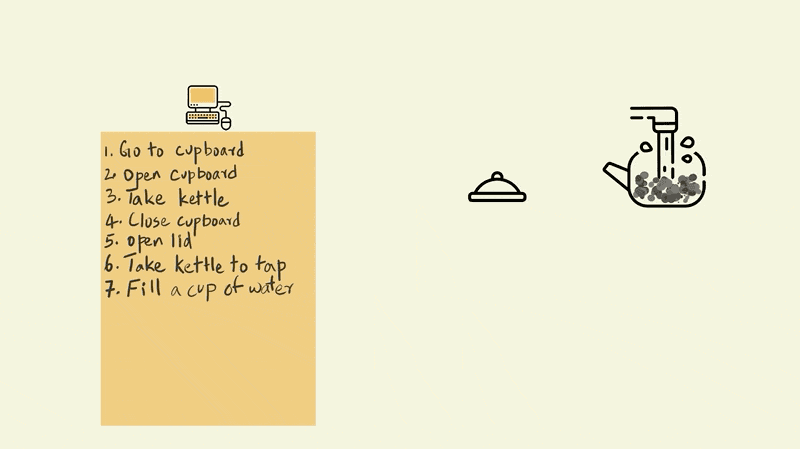 1. Go to cupboard
2. Open cupboard
3. Take kettle
4. Close cupboard
5. open lid
6. Take kettle to tap
7. Fill a cup of water